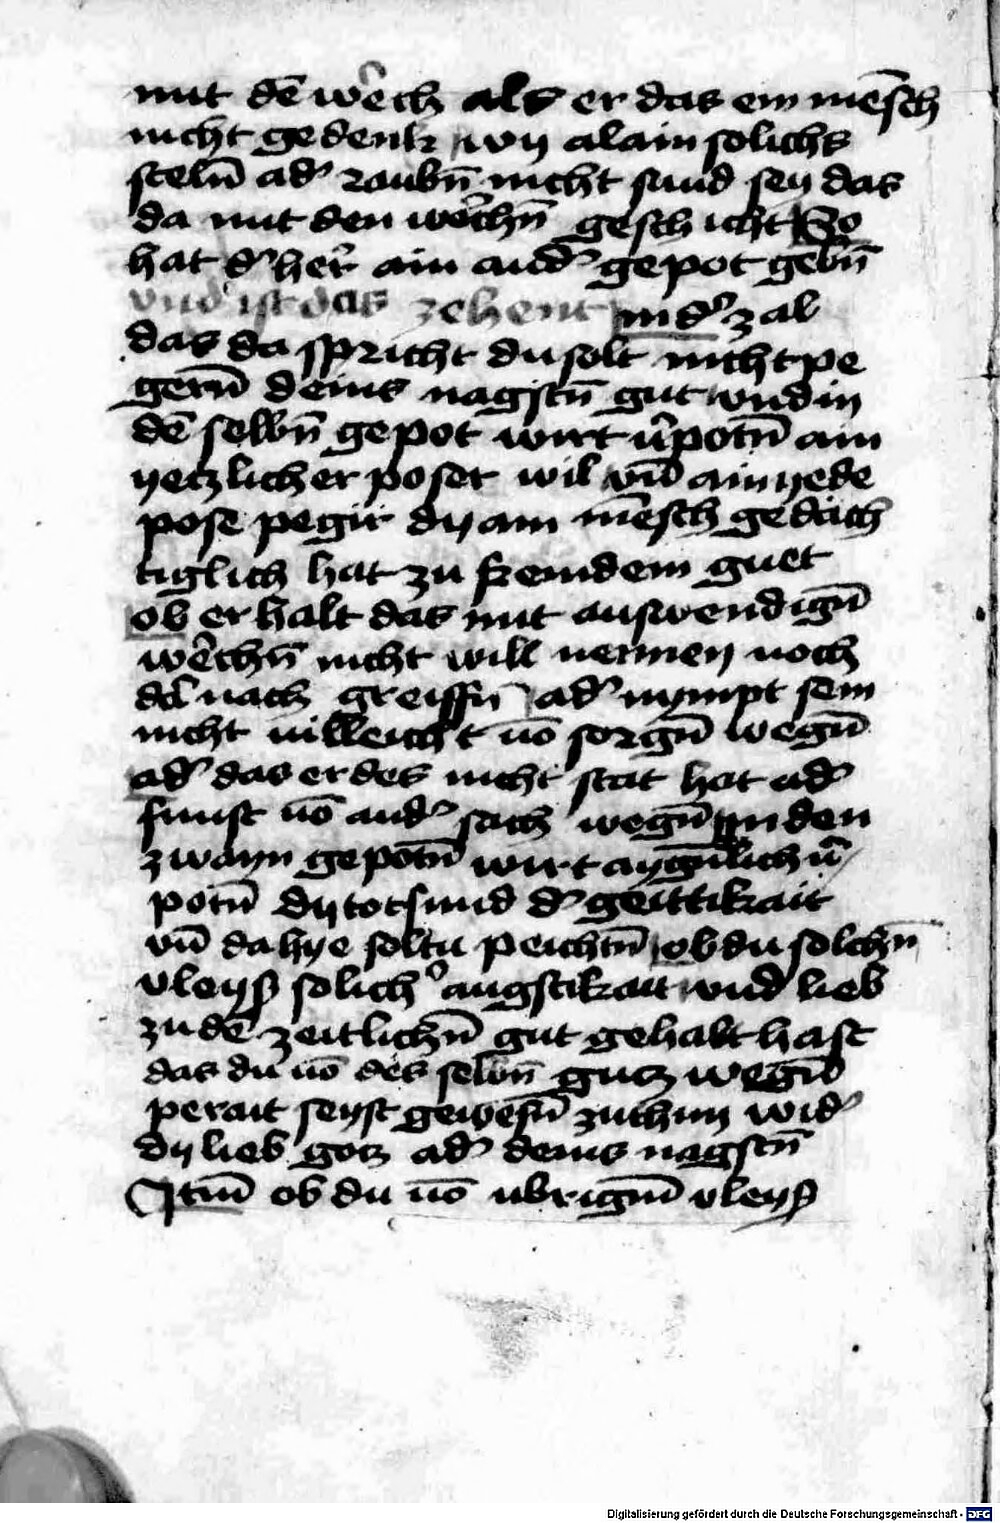 mit dē werch als er das ein mēsch
nicht gedenk wy alain solichs
steln̄ ad' raubn̄ nicht sund sey das
da mit den werchn̄ geschicht So
hat d' her ain and' gepot gebn̄
vnd ist das zehent in d' zal
das da spricht du solt nicht pe
gern̄ deins nagstn̄ gut vnd in
dē selbn̄ gepot wirt v'potn̄ ain
yetzlicher poser wil vn̄ ain yede
pose pegir dy ain mēsch gedäch
tiglich hat zu fremdem guet
ob er halt das mit auswendign̄
werchn̄ nicht will nemen noch
dar nach greiffn̄ ad' nympt sein
nicht villeicht vō sorgn̄ wegn̄
ad' das er des nicht stat hat ad'
sunst vō and' sach wegn̄ In den
zwayn gepotn̄ wirt aygn̄lich v'
potn̄ dy totsund d' geittikait
vn̄ da hye soltu peichtn̄ ob du solchn̄
vleyß solich' angstikait vnd lieb
zu dē zeitlichn̄ gut gehabt hast
das du vō des selbn̄ gutz wegn̄
perait seyst gewesn̄ zuthun wid'
dy lieb gotz ad' deins nagstn̄
Itm̄ ob du vō vbrign̄ vleyß
Digitalisierung gefördert durch die Deutsche Forschungsgemeinschaft - DFG